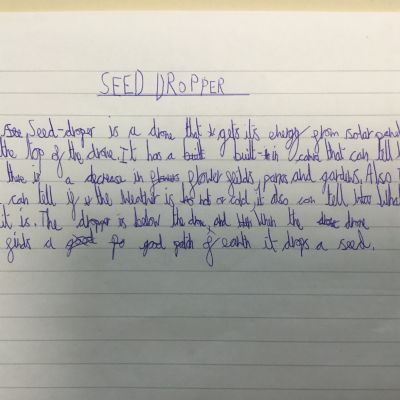 SEED DROPPER
Seed-droper is a drone that gets it's energy from solar panel
the top of the drone. It has a built built-in that can tell
there is a decrease in flower feilds, parks and gardens. Also
can tell if the Weather is hot or cold, it also can tell What
it is. The dropper is below the drone, and When the drone
finds a good patch of earth it drops a seed.